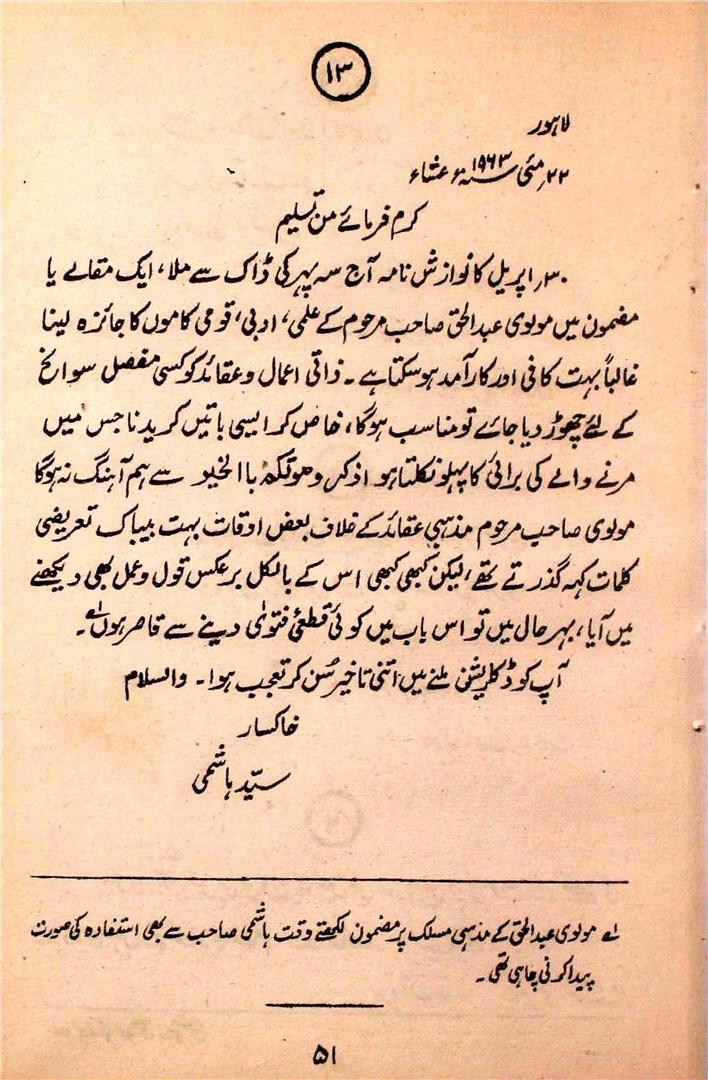 ۱۳
لاہور
۲۲؍ مئی سنہ ۱۹۶۳ء عشاء
کرم فرمائے من تسلیم
۳۰؍ اپریل کا نوازش نامہ آج سہ پہر کی ڈاک سے ملا، ایک مقالے یا
مضمون میں مولوی عبدالحق صاحب مرحوم کے علمی، ادبی، قومی کاموں کا جائزہ لینا
غالباً بہت کافی اور کارآمد ہوسکتا ہے۔ ذاتی اعمال و عقائد کو کسی مفصل سوانح
کے لئے چھوڑ دیا جائے تو مناسب ہوگا، خاص کر ایسی باتیں کریدنا جس میں
مرنے والے کی برائی کا پہلو نکلتا ہو اذکر وموتکم باالخیر سے ہم آہنگ نہ ہوگا
مولوی صاحب مرحوم مذہبی عقائد کے خلاف بعض اوقات بہت بیباک تعریضی
کلمات کہہ گذرتے تھے، لیکن کبھی کبھی اس کے بالکل برعکس قول و عمل بھی دیکھنے
میں آیا، بہرحال میں تو اس باب میں کوئی قطعی فتویٰ دینے سے قاصر ہوں لے۔
آپ کو ڈکلریشن ملنے میں اتنی تاخیر سُن کر تعجب ہوا۔ والسلام
خاکسار
سیّد ہاشمی
لے مولوی عبدالحق کے مذہبی مسلک پر مضمون لکھتے وقت ہاشمی صاحب سے بھی استفادہ کی صورت
پیدا کرنی چاہی تھی۔
۵۱